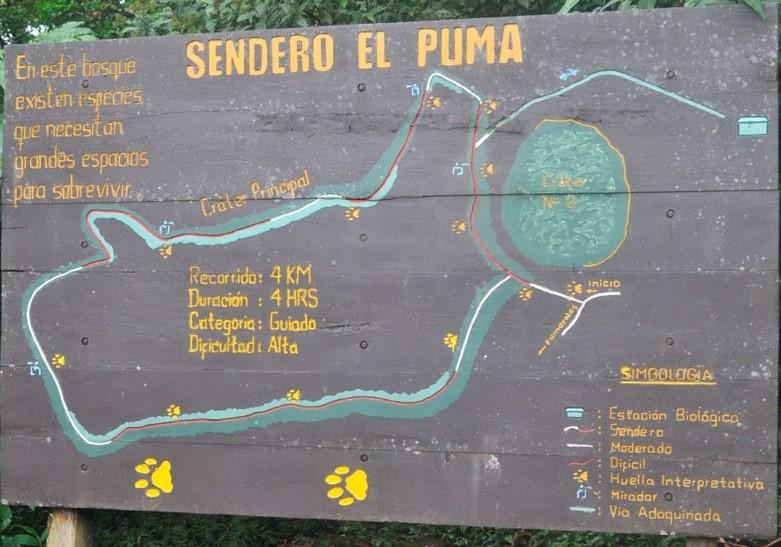 SENDERO EL PUMA
En este bosque
existen especies
que necesitan
grandes espacios
para sobrevivir.
Cráter Principal
Cráter
Nº 2
Recorrido: 4 KM
Duración : 4 HRS
Categoria: Guiado
Dificultad: Alta
INICIO
Fumarolas
SIMBOLOGIA
: Estación Biológica
: Sendero
: Moderado
: Dificil
: Huella Interpretativa
: Mirador
: Via Adoquinada